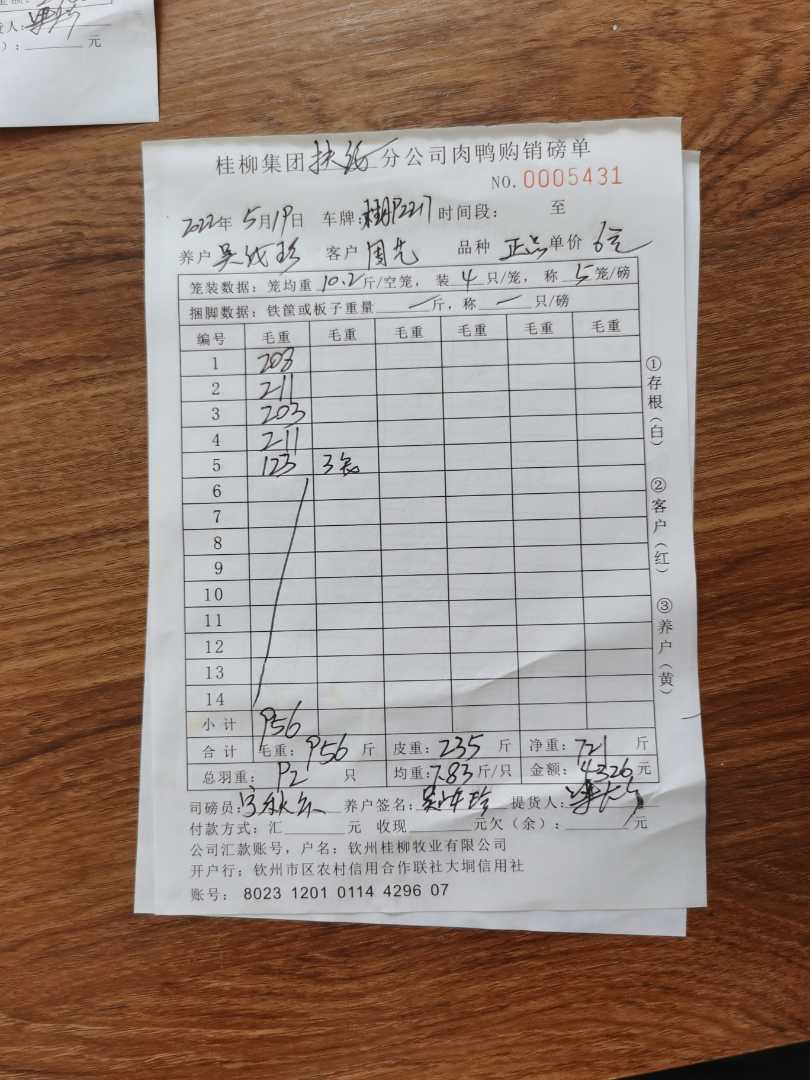 货人:
): 元
桂柳集团 扶绥 分公司肉鸭购销磅单
NO. 0005431
2022年 5月19日 车牌: 时间段: 至
养户 吴 珍 客户 周先 品种 正品 单价 6元
笼装数据: 笼均重 10.2 斤/空笼, 装 4 只/笼, 称 5 笼/磅
捆脚数据: 铁筐或板子重量 一 斤, 称 一 只/磅
编号 毛重 毛重 毛重 毛重 毛重 毛重
1 208
2 211
3 203
4 211
5 123 3笼
6
7
8
9
10
11
12
13
14
小计 956
合计 毛重: 956 斤 皮重: 235 斤 净重: 721 斤
总羽重: 92 只 均重: 7.83 斤/只 金额: 4326 元
司磅员: 养户签名: 吴 珍 提货人:
付款方式: 汇 元 收现 元欠(余): 元
公司汇款账号, 户名: 钦州桂柳牧业有限公司
开户行: 钦州市区农村信用合作联社大垌信用社
账号: 8023 1201 0114 4296 07
①存根(白)
②客户(红)
③养户(黄)